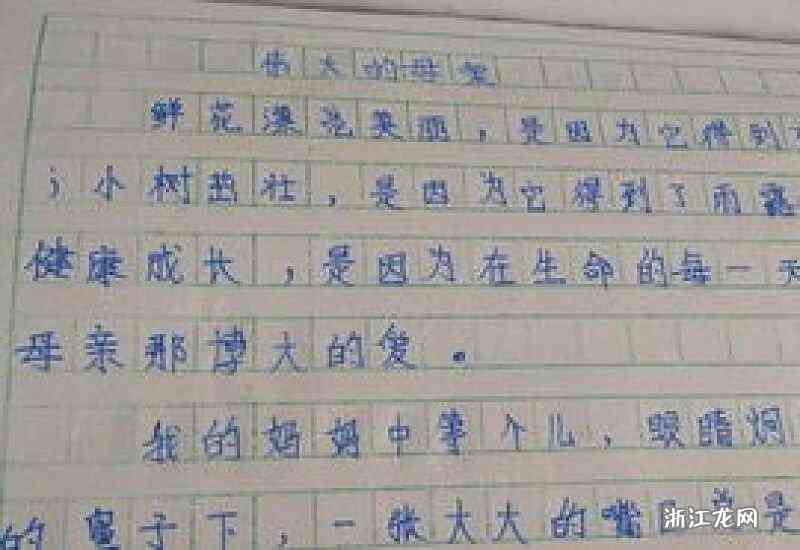 伟大的母爱
鲜花漂亮美丽，是因为它得到
；小树茁壮，是因为它得到了雨露
健康成长，是因为在生命的每一天
母亲那博大的爱。
我的妈妈中等个儿，眼睛炯
的鼻子下，一张大大的嘴巴总是
浙江龙网